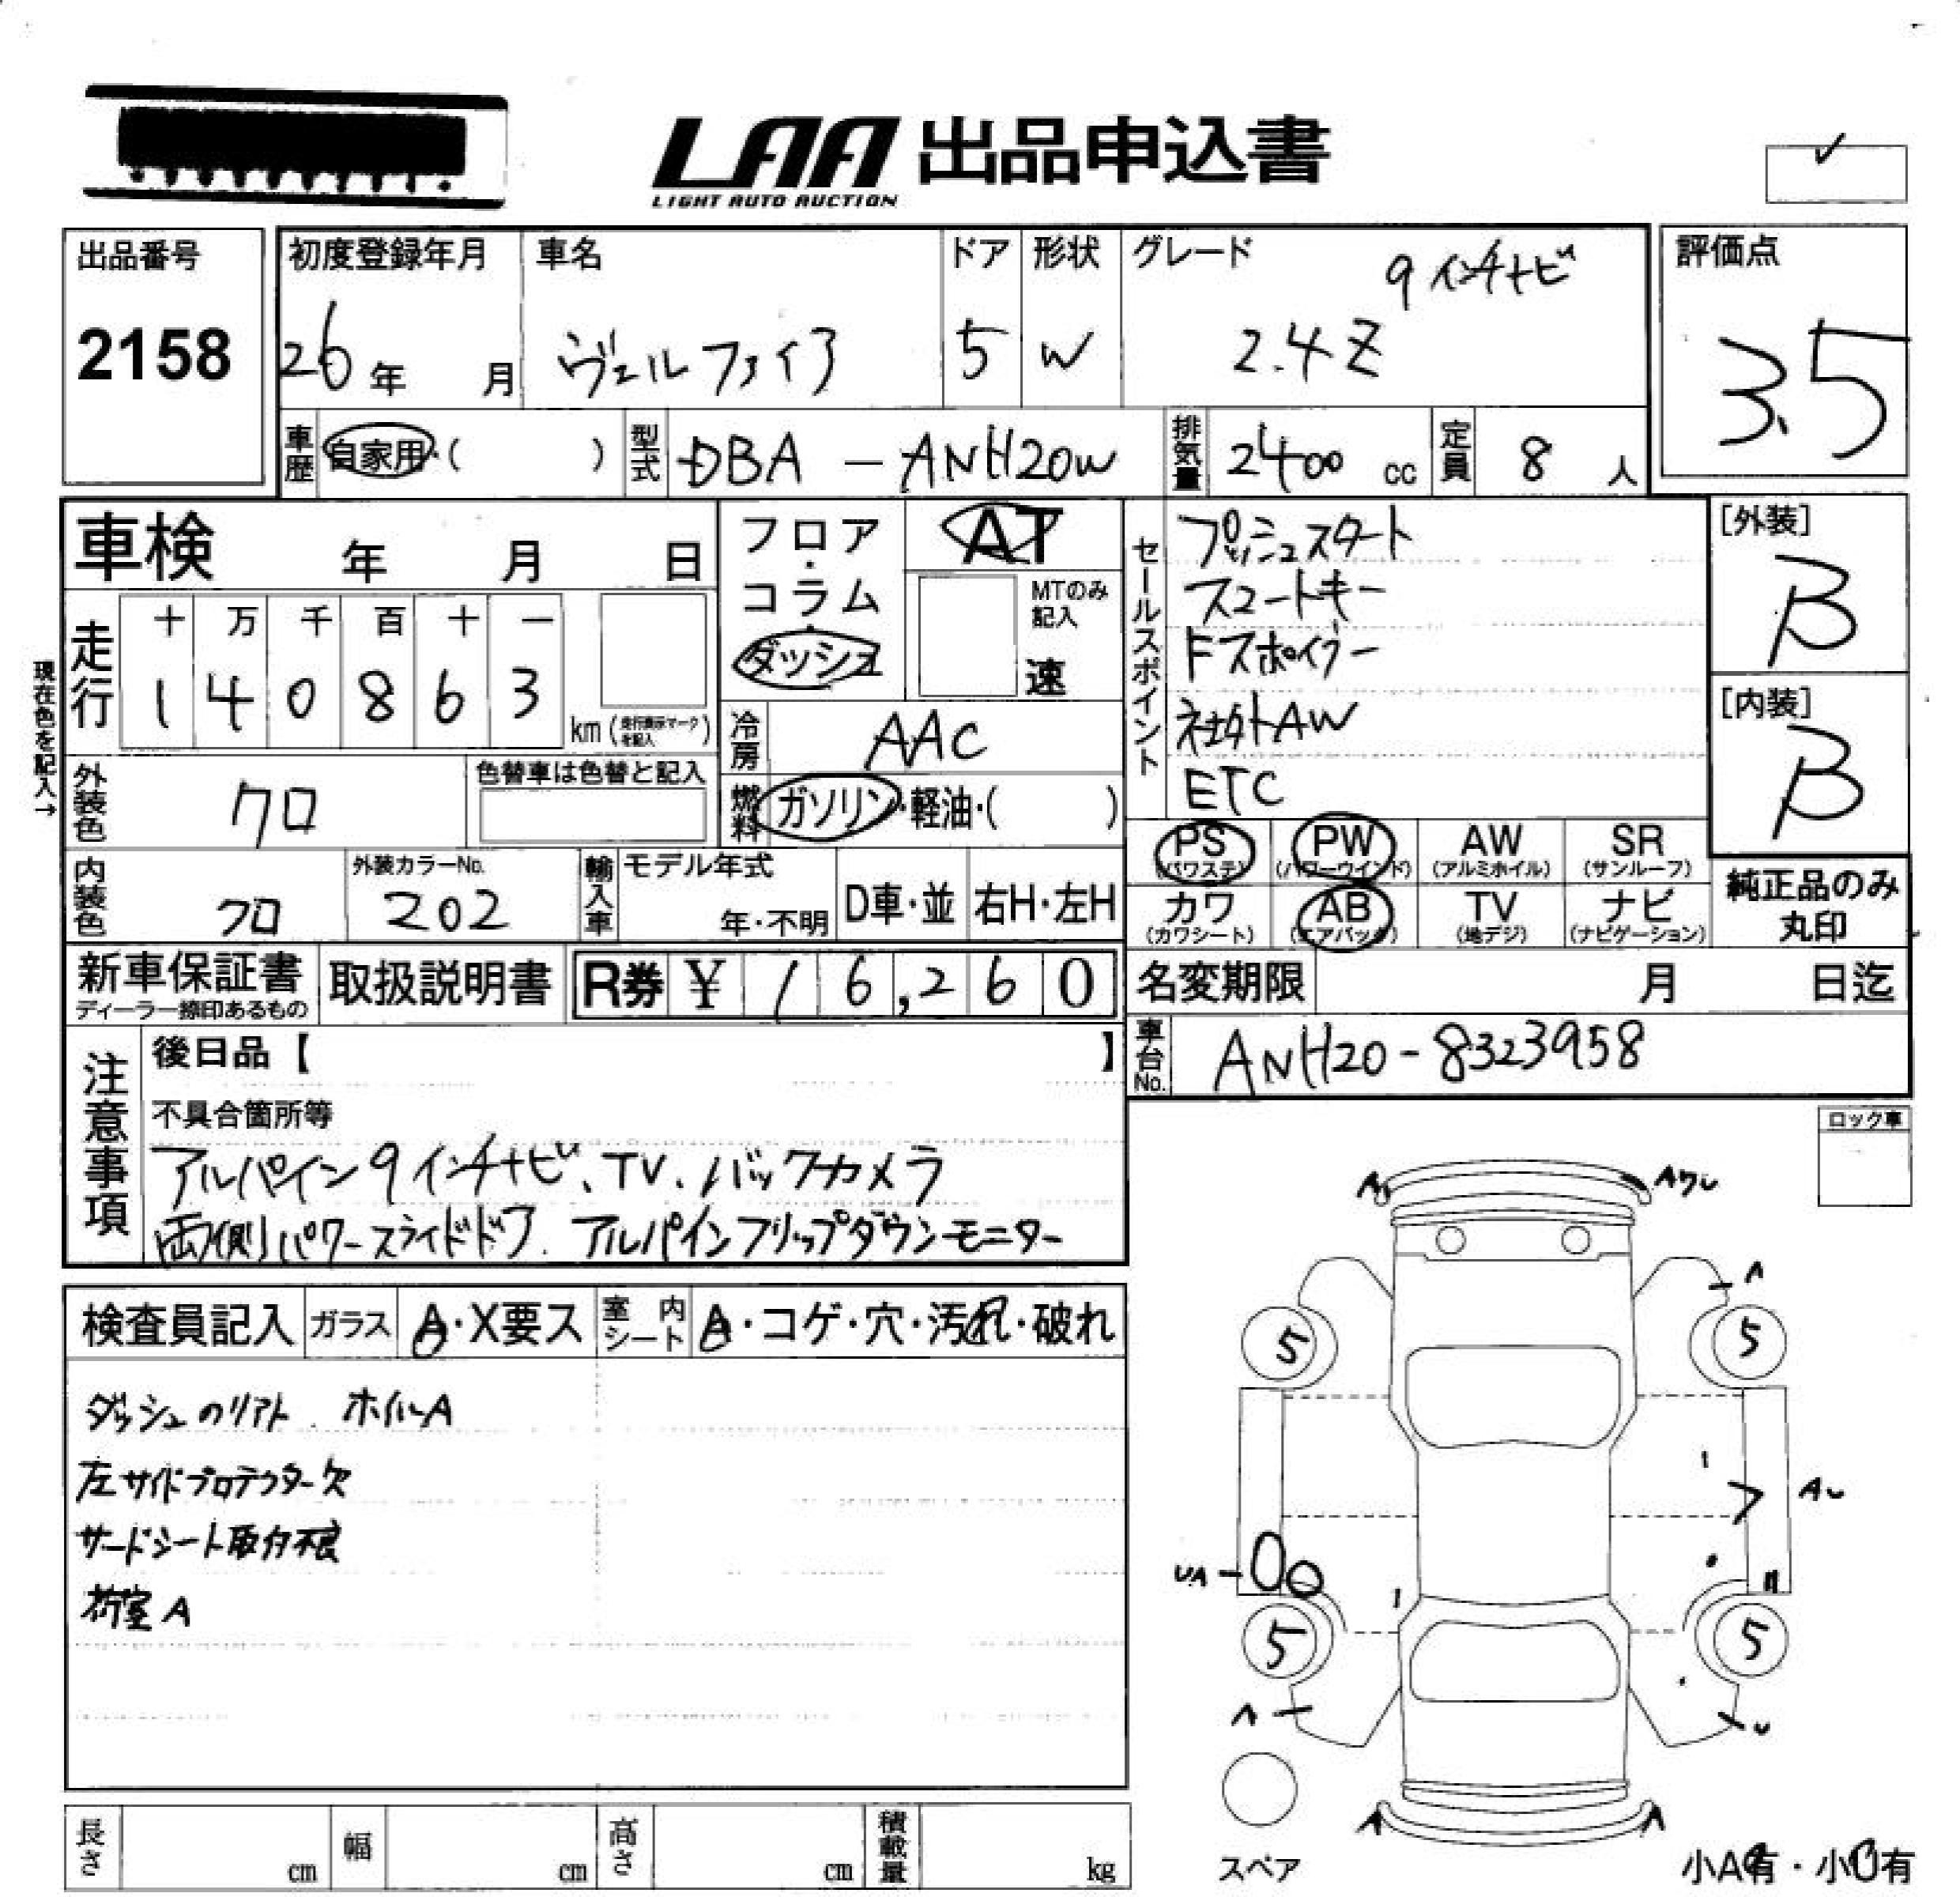 LAA 出品申込書
LIGHT AUTO AUCTION
出品番号
2158
初度登録年月
26年 月
車名
ヴェルファイア
ドア
5
形状
W
グレード
9インチナビ
2.4Z
評価点
3.5
車歴 自家用・( )
型式 DBA-ANH20W
排気量 2400 cc
定員 8 人
車検 年 月 日
現在色を記入→
走行
十 万 千 百 十 一
1 4 0 8 6 3
km (走行表示マークを記入)
フロア・コラム・ダッシュ
AT
MTのみ記入
速
冷房 AAC
燃料 ガソリン・軽油・( )
セールスポイント
プッシュスタート
スマートキー
Fスポイラー
社外AW
ETC
[外装]
B
[内装]
B
外装色 クロ
色替車は色替と記入
内装色 クロ
外装カラーNo.
202
輸入車
モデル年式
年・不明
D車・並
右H・左H
PS (パワステ)
PW (パワーウインド)
AW (アルミホイル)
SR (サンルーフ)
カワ (カワシート)
AB (エアバッグ)
TV (地デジ)
ナビ (ナビゲーション)
純正品のみ
丸印
新車保証書
ディーラー捺印あるもの
取扱説明書
R券 ¥ 16,260
名変期限 月 日迄
車台No. ANH20-8323958
注意事項
後日品【 】
不具合箇所等
アルパイン9インチナビ、TV、バックカメラ
両側パワースライドドア、アルパインフリップダウンモニター
検査員記入
ガラス A・X要ス
室内シート A・コゲ・穴・汚れ・破れ
ダッシュのリアト ホイルA
左サイドプロテクター欠
サードシート取付不良
荷室A
ロック車
A
AワU
A
5
5
AU
UA
5
5
A
U
A
A
スペア
小A有・小U有
長さ cm
幅 cm
高さ cm
積載量 kg